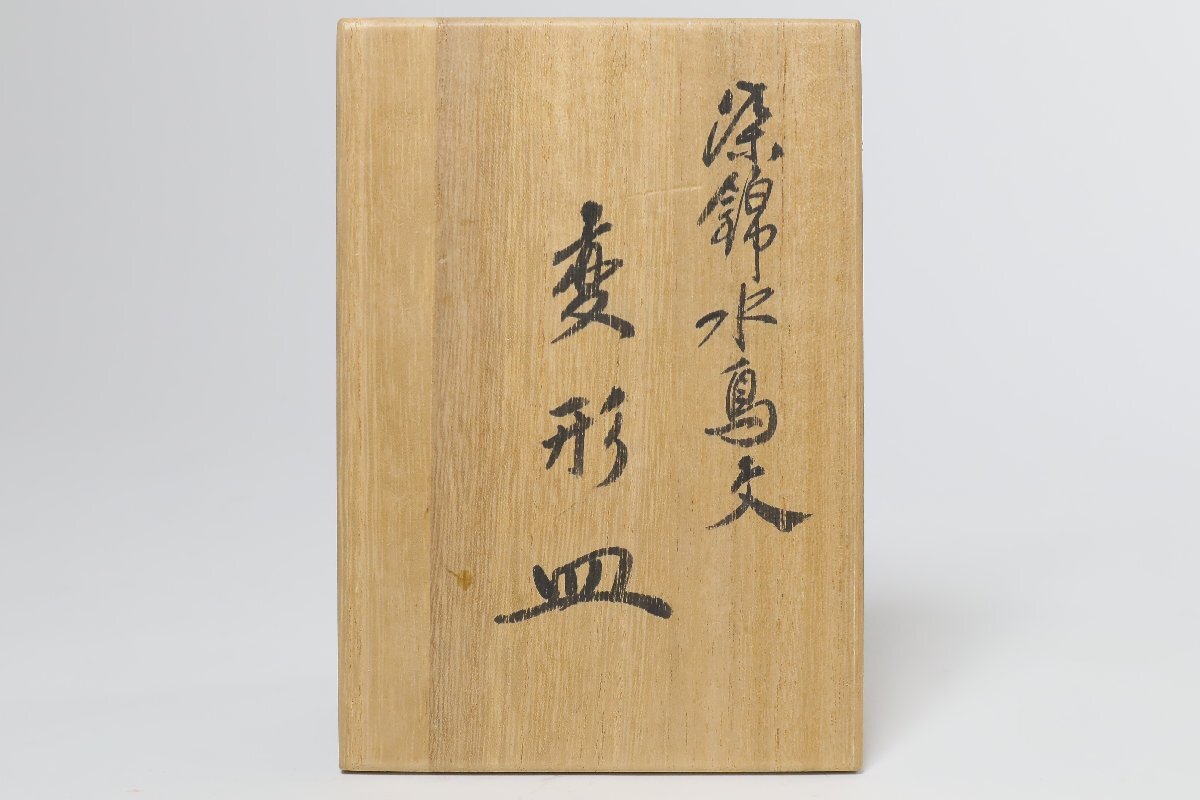 染錦水鳥文
変形皿